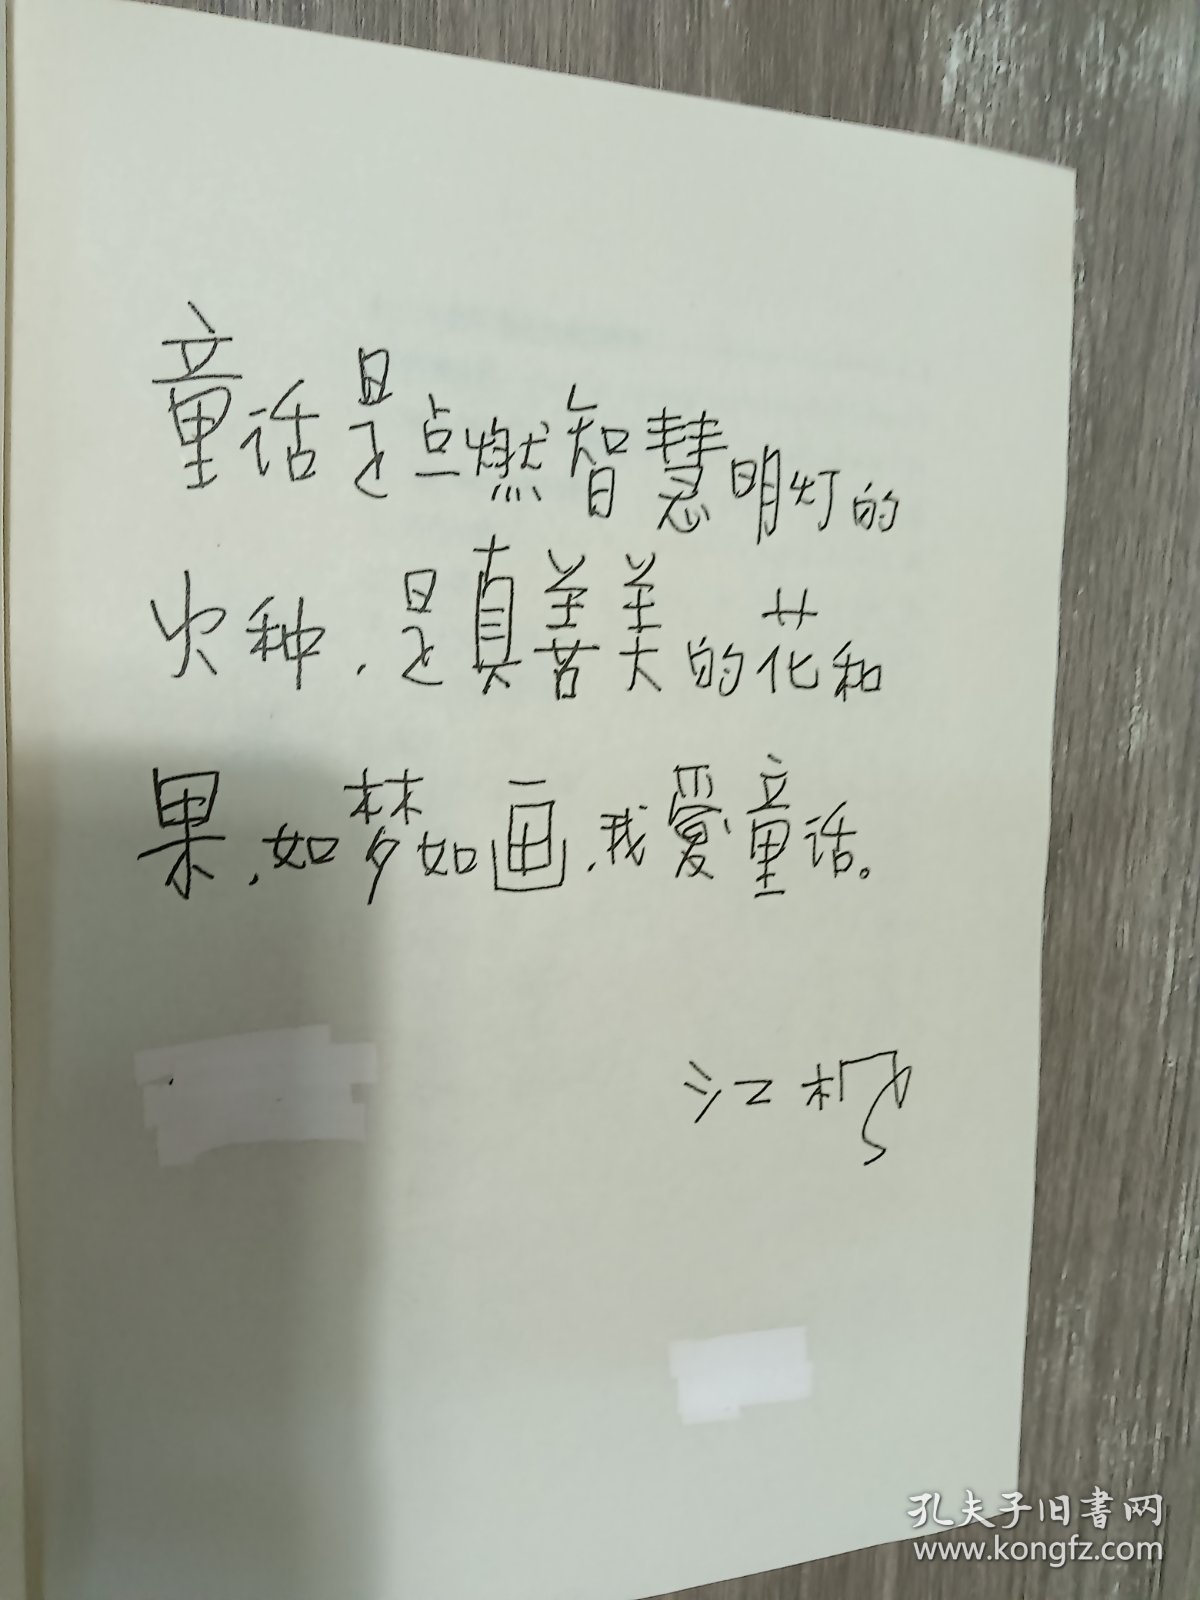 童话是点燃智慧明灯的
火种，是真善美的花和
果，如梦如画，我爱童话。
江
孔夫子旧书网
www.kongfz.com